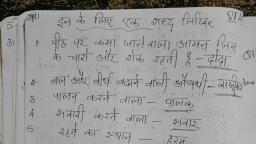 इन के लिए एक शब्द लिखिए VIII
1. पीठ पर कसा जाने वाला आसन जिस
के चारों और रोक रहती है - हौदा
2. बल और वीर्य बढ़ाने वाली औषधी -
3 पालन करने वाला - पालक
4 सवारी करने वाला - सवार
5 रहने का स्थान -